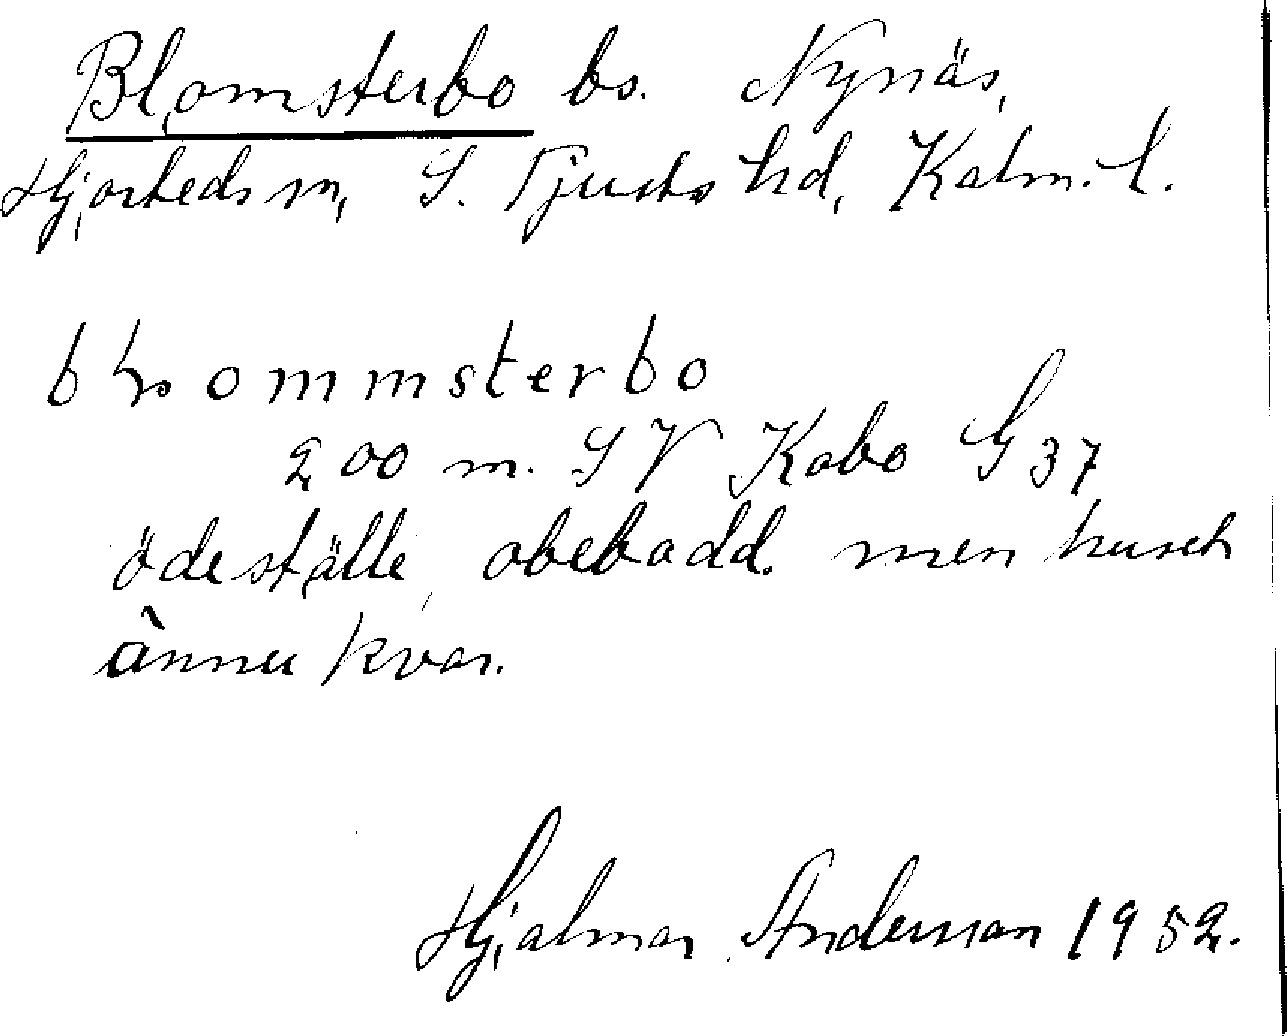 Blomsterbo bs. Nynäs,
Hjorteds sn, S. Tjusts hd, Kalm. l.
ommsterbo
200 m. SV Kabo G 37
ödeställe, obebodd. men huset
ännu kvar.
Hjalmar Andersson 1952.